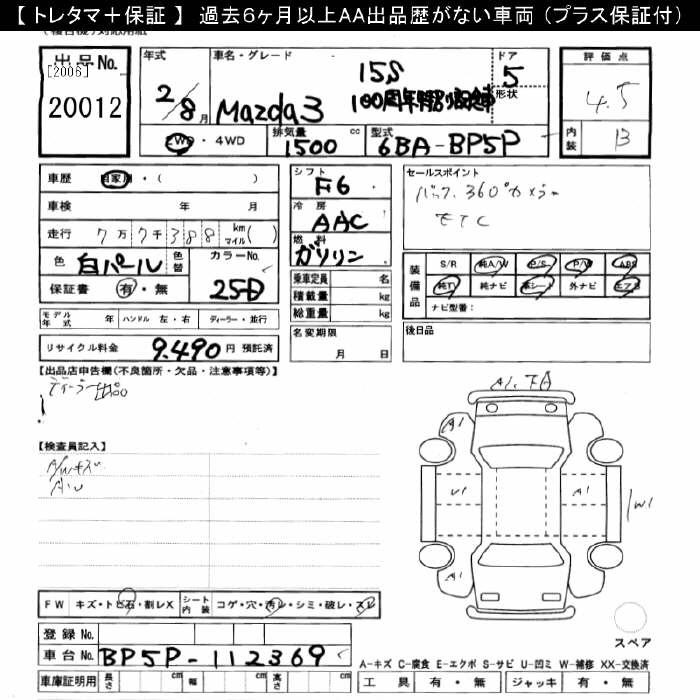 【トレタマ＋保証】 過去6ヶ月以上AA出品歴がない車両(プラス保証付)
出品No.
[2006]
20012
年式
2/8月
車名・グレード
Mazda3
15S
100周年特別記念車
ドア
5
形状
2WD・4WD
排気量
1500 cc
型式
6BA-BP5P
評価点
4.5
内装
B
車歴 自家用・( )
車検 年 月
走行 7万7千388 km マイル( )
色 白パール 色替
カラーNo.
25D
保証書 有・無
シフト
F6
冷房
AAC
燃料
ガソリン
乗車定員 名
積載量 kg
総重量 kg
セールスポイント
バック、360°カメラ
ETC
装備品
S/R 純A/W P/S P/W ABS
純TV 純ナビ 革シート 外ナビ エアB
ナビ型番:
モデル年式 年 ハンドル 左・右 ディーラー・並行
リサイクル料金 9,490 円 預託済
名変期限
月 日
後日品
【出品店申告欄(不良箇所・欠品・注意事項等)】
【検査員記入】
A1
A1
U1
A1
W1
A1
FW キズ・トビ石・割レX
シート内装 コゲ・穴・汚レ・シミ・破レ・スレ
スペア
登録 No.
車台 No. BP5P-112369
車庫証明用 長さ cm 幅 cm 高さ cm
A-キズ C-腐食 E-エクボ S-サビ U-凹ミ W-補修 XX-交換済
工具 有・無 ジャッキ 有・無